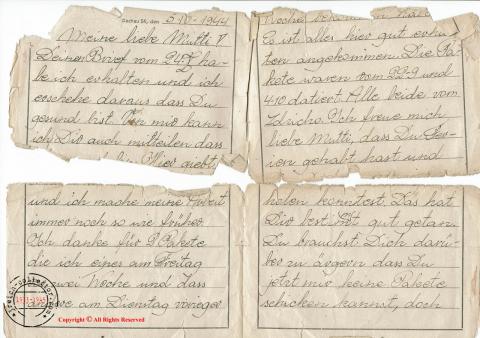 Dachau 3K, den 5-IV-1944
Meine liebe Mutti!
Deinen Brief vom 24.9 ha-
be ich erhalten und ich
ersehe daraus dass Du
gesund bist. Von mir kann
ich Dir auch mitteilen dass
Hier giebt
und ich mache meine Arbeit
immer noch so wie früher.
Ich danke für 2 Pakete
die ich eines am Freitag
zwei Woche und dass
am Dienstag voriger
Woche bekommen habe
Es ist alles hier gut erhal-
ten angekommen. Die Pa-
kete waren vom 22-9 und
4.10 datiert. Alle beide vom
Ich freue mich
liebe Mutti, dass Du Fer-
ien gehabt hast und
holen konntest. Das hat
Dir bestimmt gut getan.
Du brauchst Dich darü-
ber zu ärgern dass Du
jetzt mir keine Pakete
schicken kannst, doch
1933-1945
Copyright © All Rights Reserved